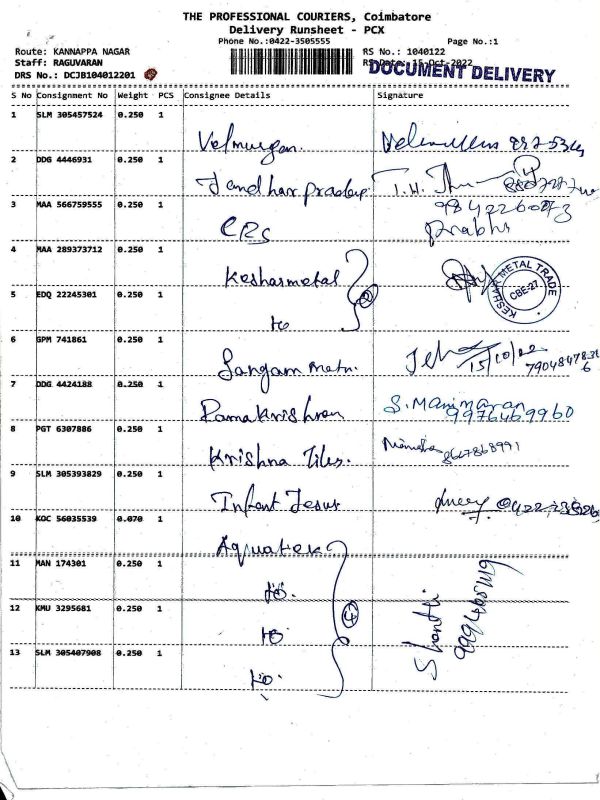 THE PROFESSIONAL COURIERS, Coimbatore
Delivery Runsheet - PCX
Phone No.:0422-3505555 Page No.:1
Route: KANNAPPA NAGAR RS No.: 1040122
Staff: RAGUVARAN RS Date: 15-Oct-2022
DRS No.: DCJB104012201 DOCUMENT DELIVERY
S No Consignment No Weight PCS Consignee Details Signature
1 SLM 305457524 0.250 1
Velmurgan.
2 DDG 4446931 0.250 1
3 MAA 566759555 0.250 1
CRS Prabhu
4 MAA 289373712 0.250 1
Kesharmetal KESHAR METAL TRADE CBE-27
5 EDQ 22245301 0.250 1
6 GPM 741861 0.250 1
Sangam 15/10/22
7 DDG 4424188 0.250 1
Ramakrishnan S. Manimaran
9976469960
8 PGT 6307886 0.250 1
Krishna Tiles. 8667868991
9 SLM 305393829 0.250 1
Infant Jesus
10 KOC 56035539 0.070 1
Aquatek
11 MAN 174301 0.250 1
12 KMU 3295681 0.250 1
Shanthi
13 SLM 305407908 0.250 1